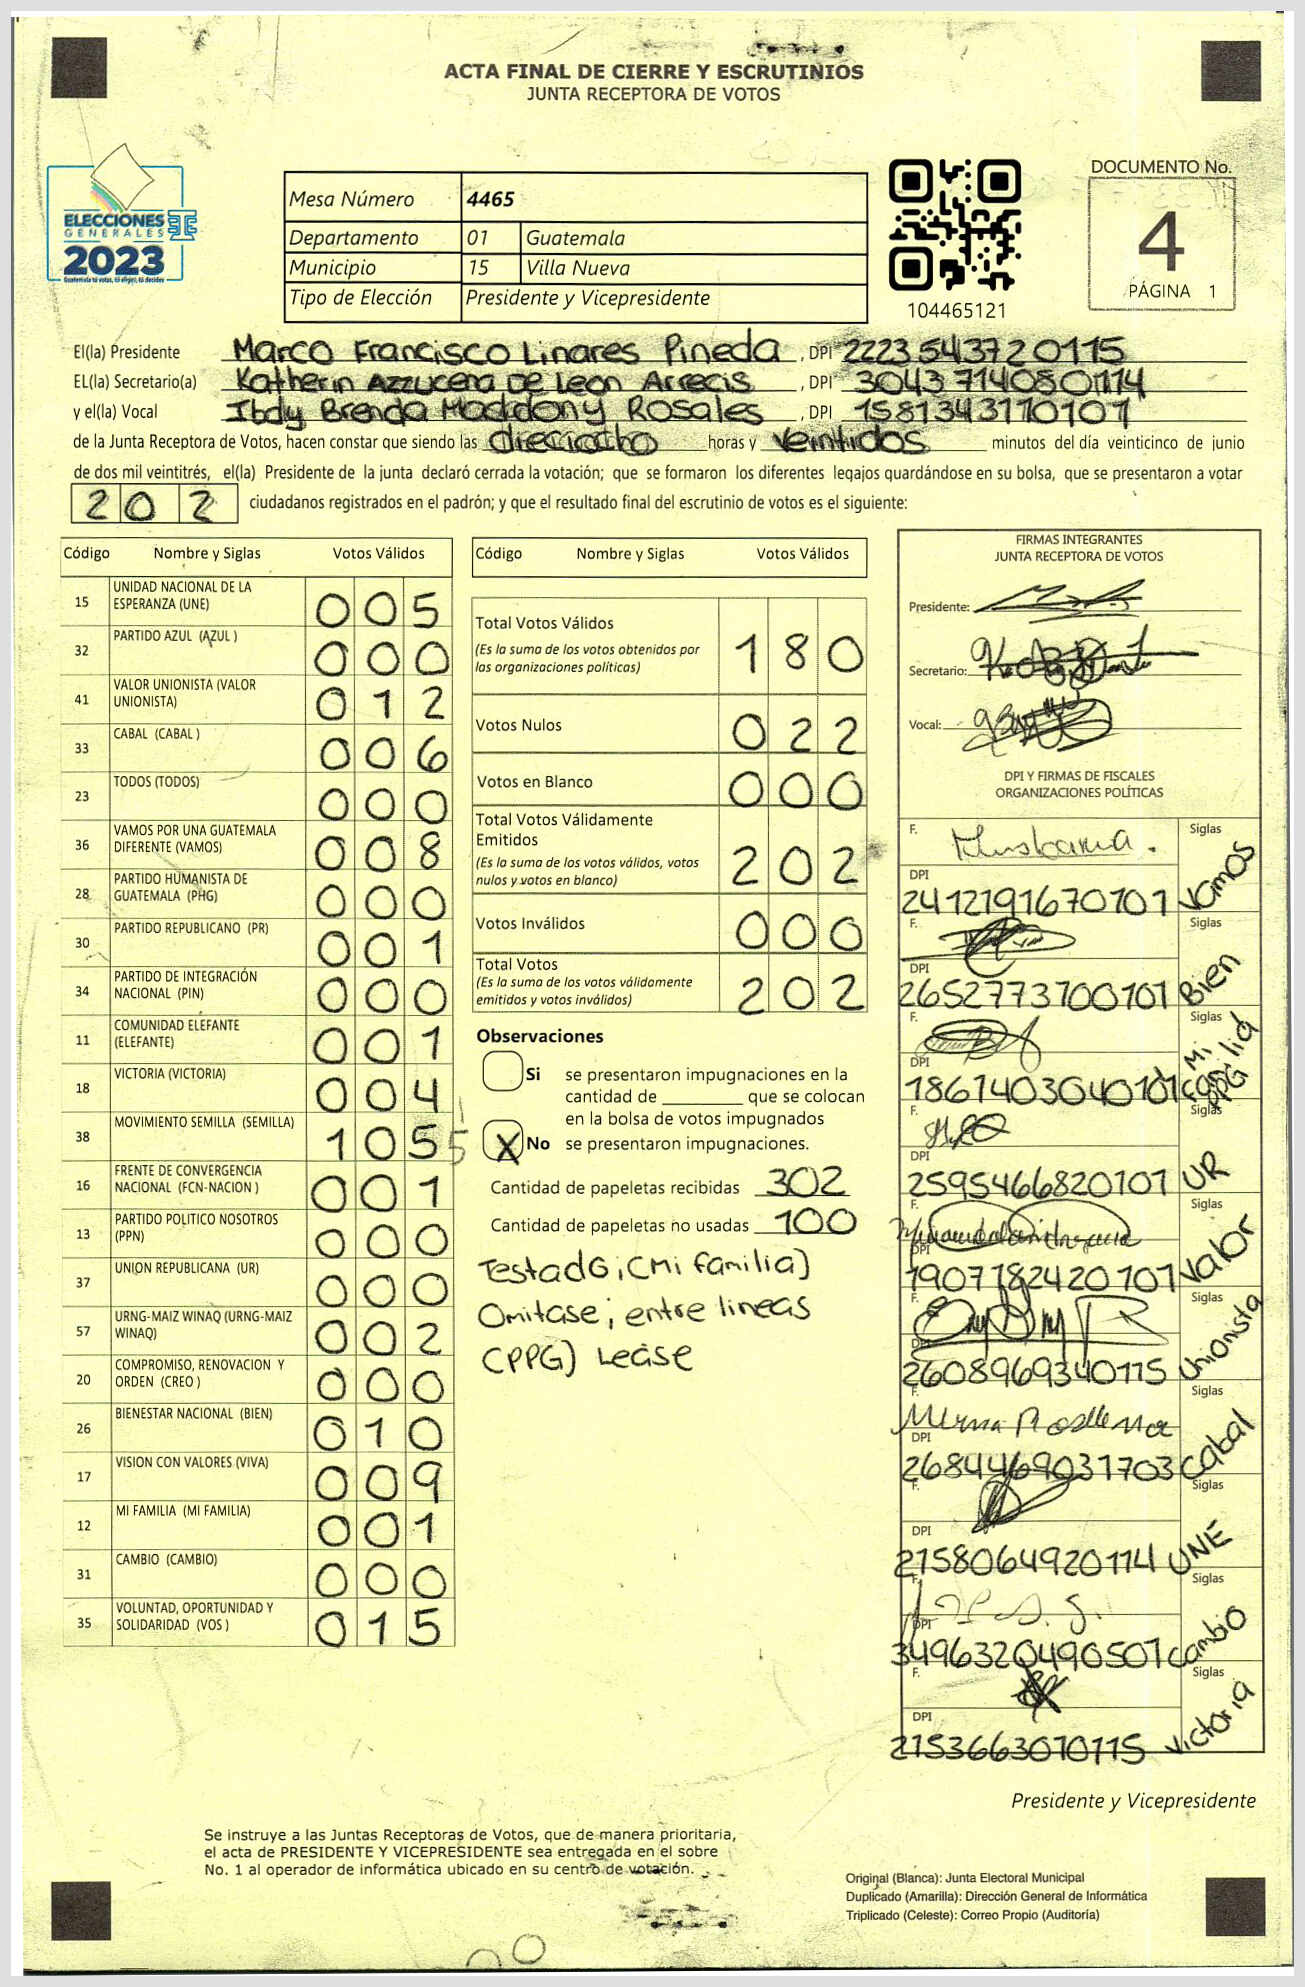 ACTA FINAL DE CIERRE Y ESCRUTINIOS
JUNTA RECEPTORA DE VOTOS
ELECCIONES
GENERALES
2023
Guatemala tú votas, tú eliges, tú decides
Mesa Número 4465
Departamento 01 Guatemala
Municipio 15 Villa Nueva
Tipo de Elección Presidente y Vicepresidente
104465121
DOCUMENTO No.
4
PÁGINA 1
El(la) Presidente Marco Francisco Linares Pineda, DPI 2223543720115
EL(la) Secretario(a) Katherin Azzucena De Leon Arrecis, DPI 3043714080114
y el(la) Vocal Brenda Rosales, DPI 1581343170101
de la Junta Receptora de Votos, hacen constar que siendo las dieciocho horas y veintidos minutos del día veinticinco de junio
de dos mil veintitrés, el(la) Presidente de la junta declaró cerrada la votación; que se formaron los diferentes legajos guardándose en su bolsa, que se presentaron a votar
202 ciudadanos registrados en el padrón; y que el resultado final del escrutinio de votos es el siguiente:
Código Nombre y Siglas Votos Válidos
15 UNIDAD NACIONAL DE LA ESPERANZA (UNE) 005
32 PARTIDO AZUL (AZUL ) 000
41 VALOR UNIONISTA (VALOR UNIONISTA) 012
33 CABAL (CABAL ) 006
23 TODOS (TODOS) 000
36 VAMOS POR UNA GUATEMALA DIFERENTE (VAMOS) 008
28 PARTIDO HUMANISTA DE GUATEMALA (PHG) 000
30 PARTIDO REPUBLICANO (PR) 001
34 PARTIDO DE INTEGRACIÓN NACIONAL (PIN) 000
11 COMUNIDAD ELEFANTE (ELEFANTE) 001
18 VICTORIA (VICTORIA) 004
38 MOVIMIENTO SEMILLA (SEMILLA) 105 5
16 FRENTE DE CONVERGENCIA NACIONAL (FCN-NACION ) 001
13 PARTIDO POLITICO NOSOTROS (PPN) 000
37 UNION REPUBLICANA (UR) 000
57 URNG-MAIZ WINAQ (URNG-MAIZ WINAQ) 002
20 COMPROMISO, RENOVACION Y ORDEN (CREO ) 000
26 BIENESTAR NACIONAL (BIEN) 010
17 VISION CON VALORES (VIVA) 009
12 MI FAMILIA (MI FAMILIA) 001
31 CAMBIO (CAMBIO) 000
35 VOLUNTAD, OPORTUNIDAD Y SOLIDARIDAD (VOS ) 015
Código Nombre y Siglas Votos Válidos
Total Votos Válidos 180
(Es la suma de los votos obtenidos por las organizaciones políticas)
Votos Nulos 022
Votos en Blanco 000
Total Votos Válidamente Emitidos 202
(Es la suma de los votos válidos, votos nulos y votos en blanco)
Votos Inválidos 000
Total Votos 202
(Es la suma de los votos válidamente emitidos y votos inválidos)
Observaciones
Si se presentaron impugnaciones en la
cantidad de ________ que se colocan
en la bolsa de votos impugnados
X No se presentaron impugnaciones.
Cantidad de papeletas recibidas 302
Cantidad de papeletas no usadas 100
Testado; (Mi familia)
Omitase; entre lineas
(PPG) Lease
FIRMAS INTEGRANTES
JUNTA RECEPTORA DE VOTOS
Presidente:
Secretario:
Vocal:
DPI Y FIRMAS DE FISCALES
ORGANIZACIONES POLÍTICAS
F. Siglas
DPI 2412191670101 Vamos
F. Siglas
DPI 2652773700101 Bien
F. Siglas
DPI 1861403040101 Mi familia PPG
F. Siglas
DPI 2595466820101 UR
F. Siglas
DPI 1907782420101 Valor
F. Siglas
DPI 2608969340115 Unionista
F. Siglas
DPI 2684469031703 Cabal
F. Siglas
DPI 2158064920114 UNE
F. Siglas
DPI 3496320490501 Cambio
F. Siglas
DPI 2153663070115 Victoria
Presidente y Vicepresidente
Se instruye a las Juntas Receptoras de Votos, que de manera prioritaria,
el acta de PRESIDENTE Y VICEPRESIDENTE sea entregada en el sobre
No. 1 al operador de informática ubicado en su centro de votación.
Original (Blanca): Junta Electoral Municipal
Duplicado (Amarilla): Dirección General de Informática
Triplicado (Celeste): Correo Propio (Auditoría)